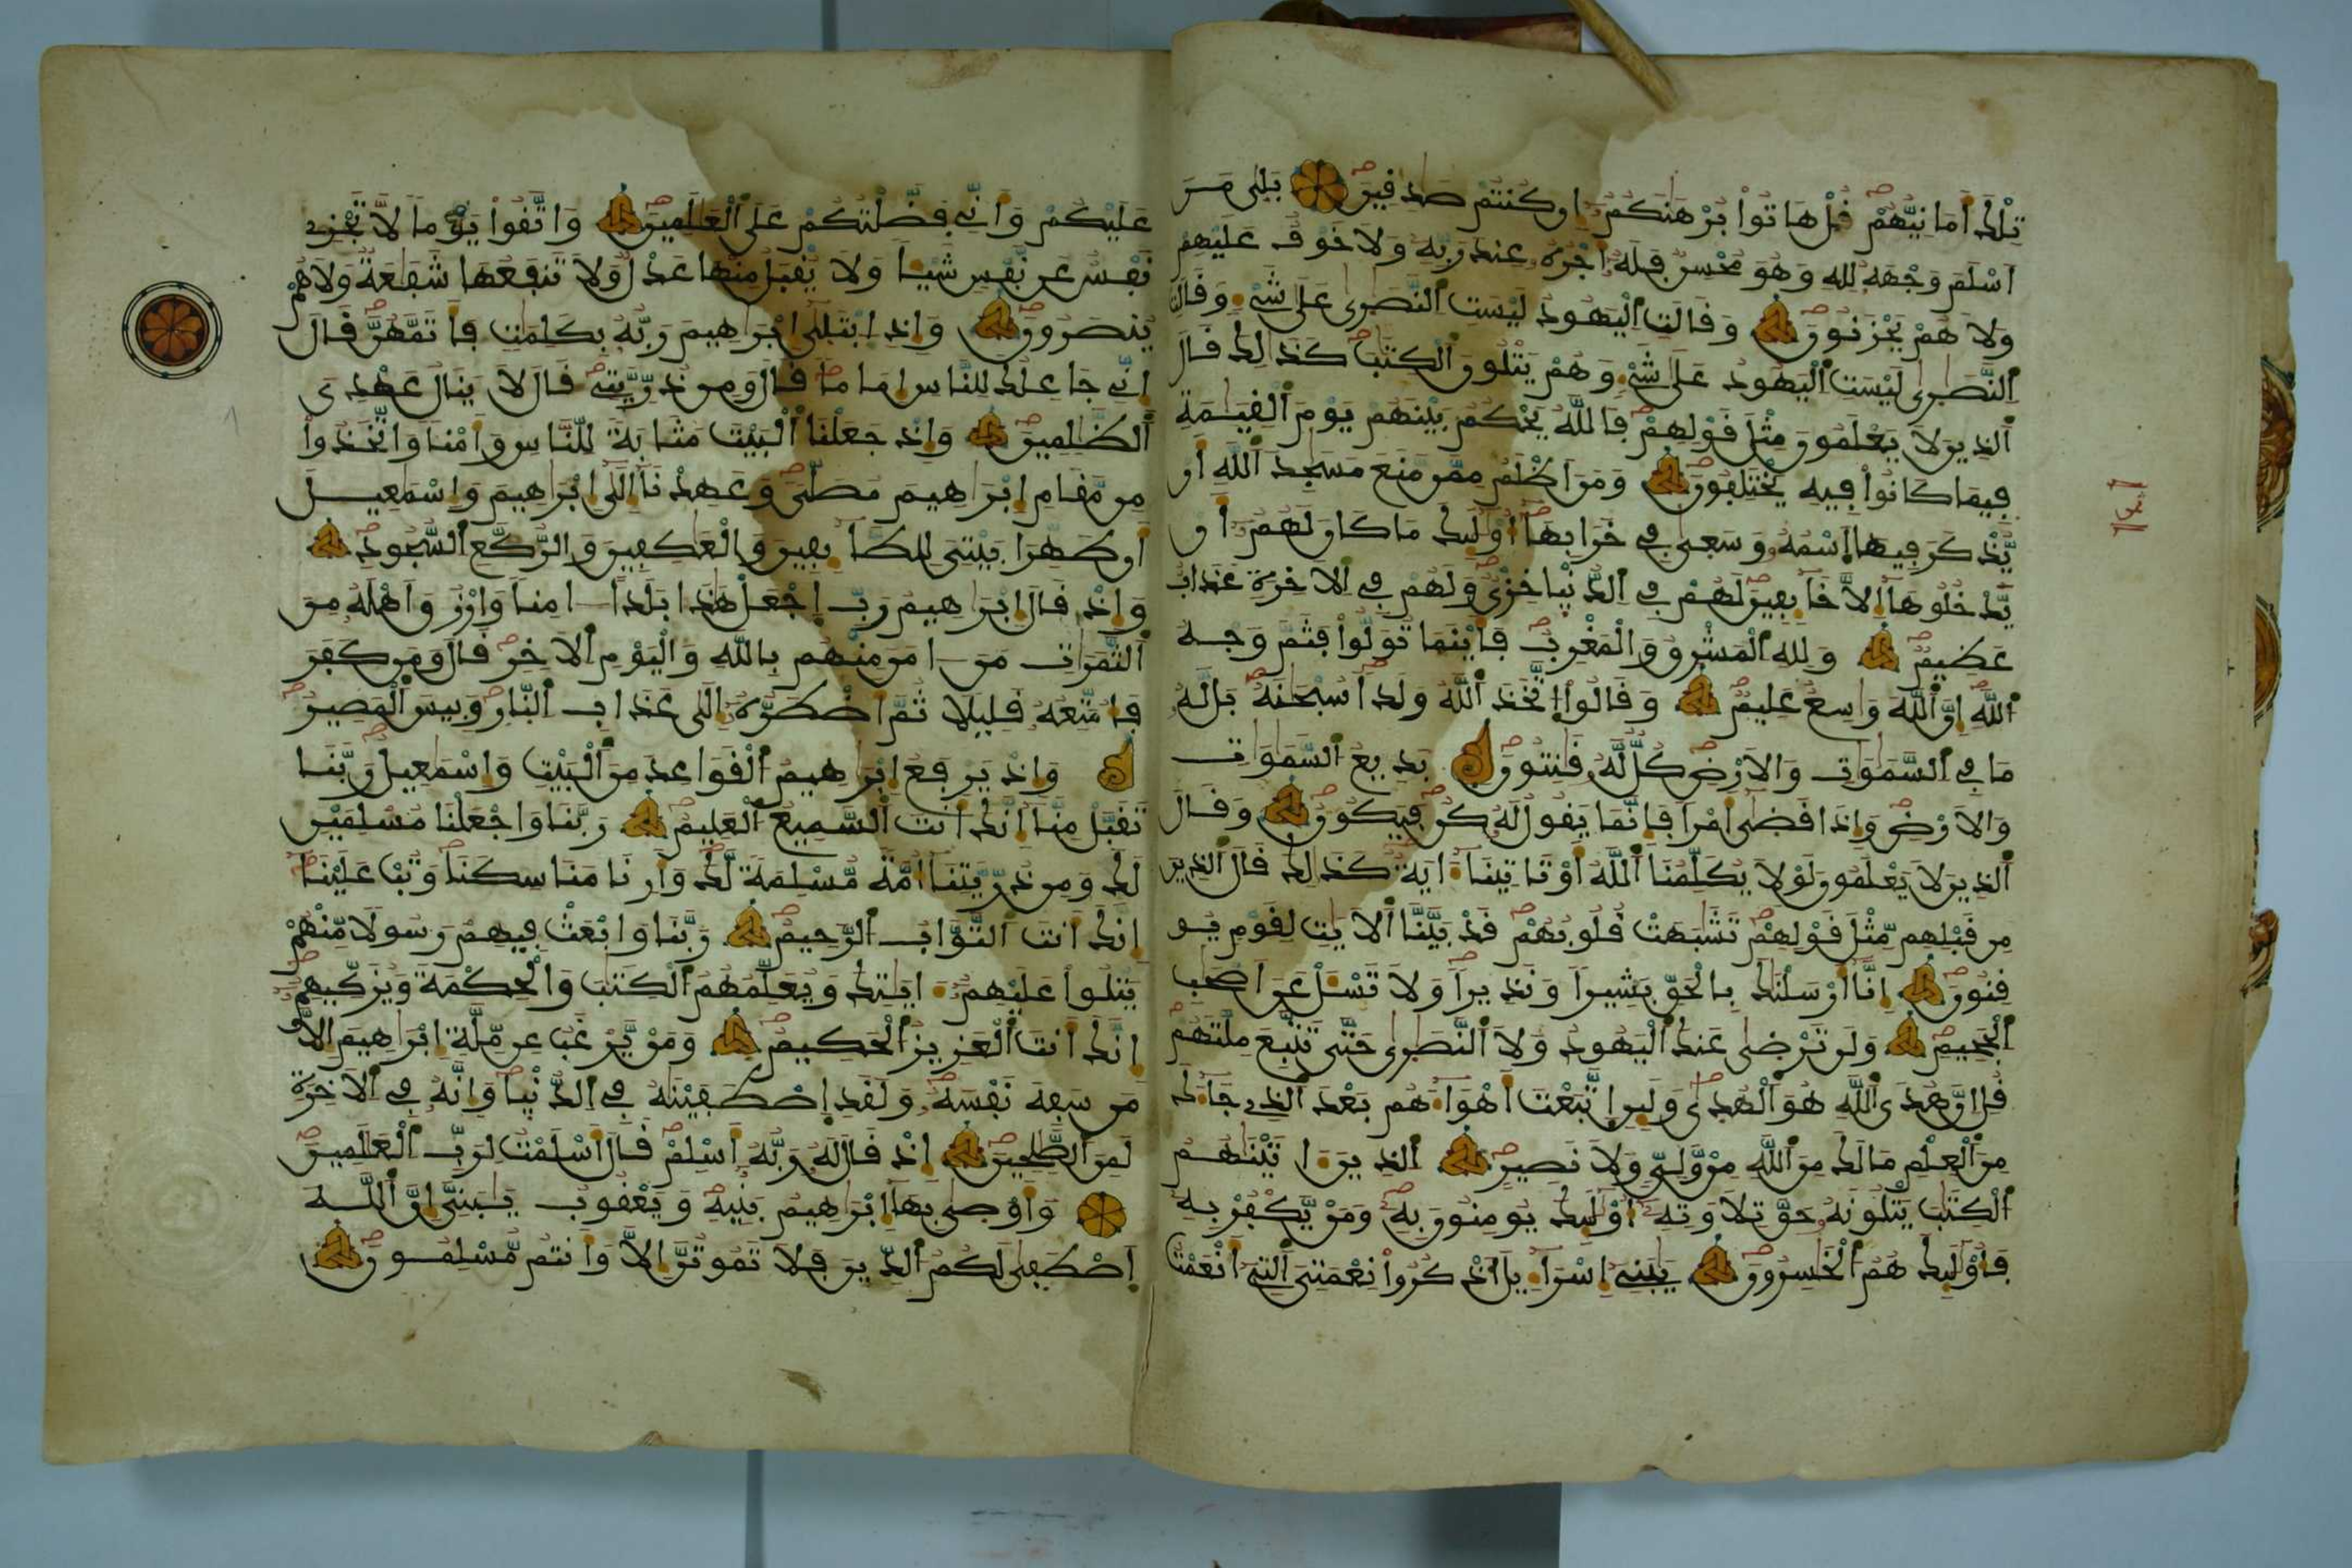 تلك امانيهم قل هاتوا برهنكم ان كنتم صدقين بلى من
اسلم وجهه لله وهو محسن فله اجره عند ربه ولا خوف عليهم
ولا هم يحزنون وقالت اليهود ليست النصرى على شيء وقالت
النصرى ليست اليهود على شيء وهم يتلون الكتب كذلك قال
الذين لا يعلمون مثل قولهم فالله يحكم بينهم يوم القيمة
فيما كانوا فيه يختلفون ومن اظلم ممن منع مسجد الله ان
يذكر فيها اسمه وسعى في خرابها اوليك ما كان لهم ان
يدخلوها الا خايفين لهم في الدنيا خزي ولهم في الاخرة عذاب
عظيم ولله المشرق والمغرب فاينما تولوا فثم وجه
الله ان الله واسع عليم وقالوا اتخذ الله ولدا سبحنه بل له
ما في السموات والارض كل له قنتون بديع السموات
والارض واذا قضى امرا فانما يقول له كن فيكون وقال
الذين لا يعلمون لولا يكلمنا الله او تاتينا اية كذلك قال الذين
من قبلهم مثل قولهم تشبهت قلوبهم قد بينا الايت لقوم يو
قنون انا ارسلنك بالحق بشيرا ونذيرا ولا تسل عن اصحب
الجحيم ولن ترضى عنك اليهود ولا النصرى حتى تتبع ملتهم
قل ان هدى الله هو الهدى ولين اتبعت اهواءهم بعد الذي جاءك
من العلم ما لك من الله من ولي ولا نصير الذين اتينهم
الكتب يتلونه حق تلاوته اوليك يومنون به ومن يكفر به
فاوليك هم الخسرون يبني اسرايل اذكروا نعمتي التي انعمت
عليكم واني فضلتكم على العلمين واتقوا يوما لا تجزي
نفس عن نفس شيا ولا يقبل منها عدل ولا تنفعها شفعة ولا هم
ينصرون واذ ابتلى ابرهيم ربه بكلمت فاتمهن قال
اني جاعلك للناس اماما قال ومن ذريتي قال لا ينال عهدي
الظلمين واذ جعلنا البيت مثابة للناس وامنا واتخذوا
من مقام ابرهيم مصلى وعهدنا الى ابرهيم واسمعيل
ان طهرا بيتي للطايفين والعكفين والركع السجود
واذ قال ابرهيم رب اجعل هذا بلدا امنا وارزق اهله من
الثمرات من امن منهم بالله واليوم الاخر قال ومن كفر
فامتعه قليلا ثم اضطره الى عذاب النار وبيس المصير
واذ يرفع ابرهيم القواعد من البيت واسمعيل ربنا
تقبل منا انك انت السميع العليم ربنا واجعلنا مسلمين
لك ومن ذريتنا امة مسلمة لك وارنا مناسكنا وتب علينا
انك انت التواب الرحيم ربنا وابعث فيهم رسولا منهم
يتلوا عليهم ايتك ويعلمهم الكتب والحكمة ويزكيهم
انك انت العزيز الحكيم ومن يرغب عن ملة ابرهيم الا
من سفه نفسه ولقد اصطفينه في الدنيا وانه في الاخرة
لمن الصلحين اذ قال له ربه اسلم قال اسلمت لرب العلمين
واوصى بها ابرهيم بنيه ويعقوب يبني ان الله
اصطفى لكم الدين فلا تموتن الا وانتم مسلمون